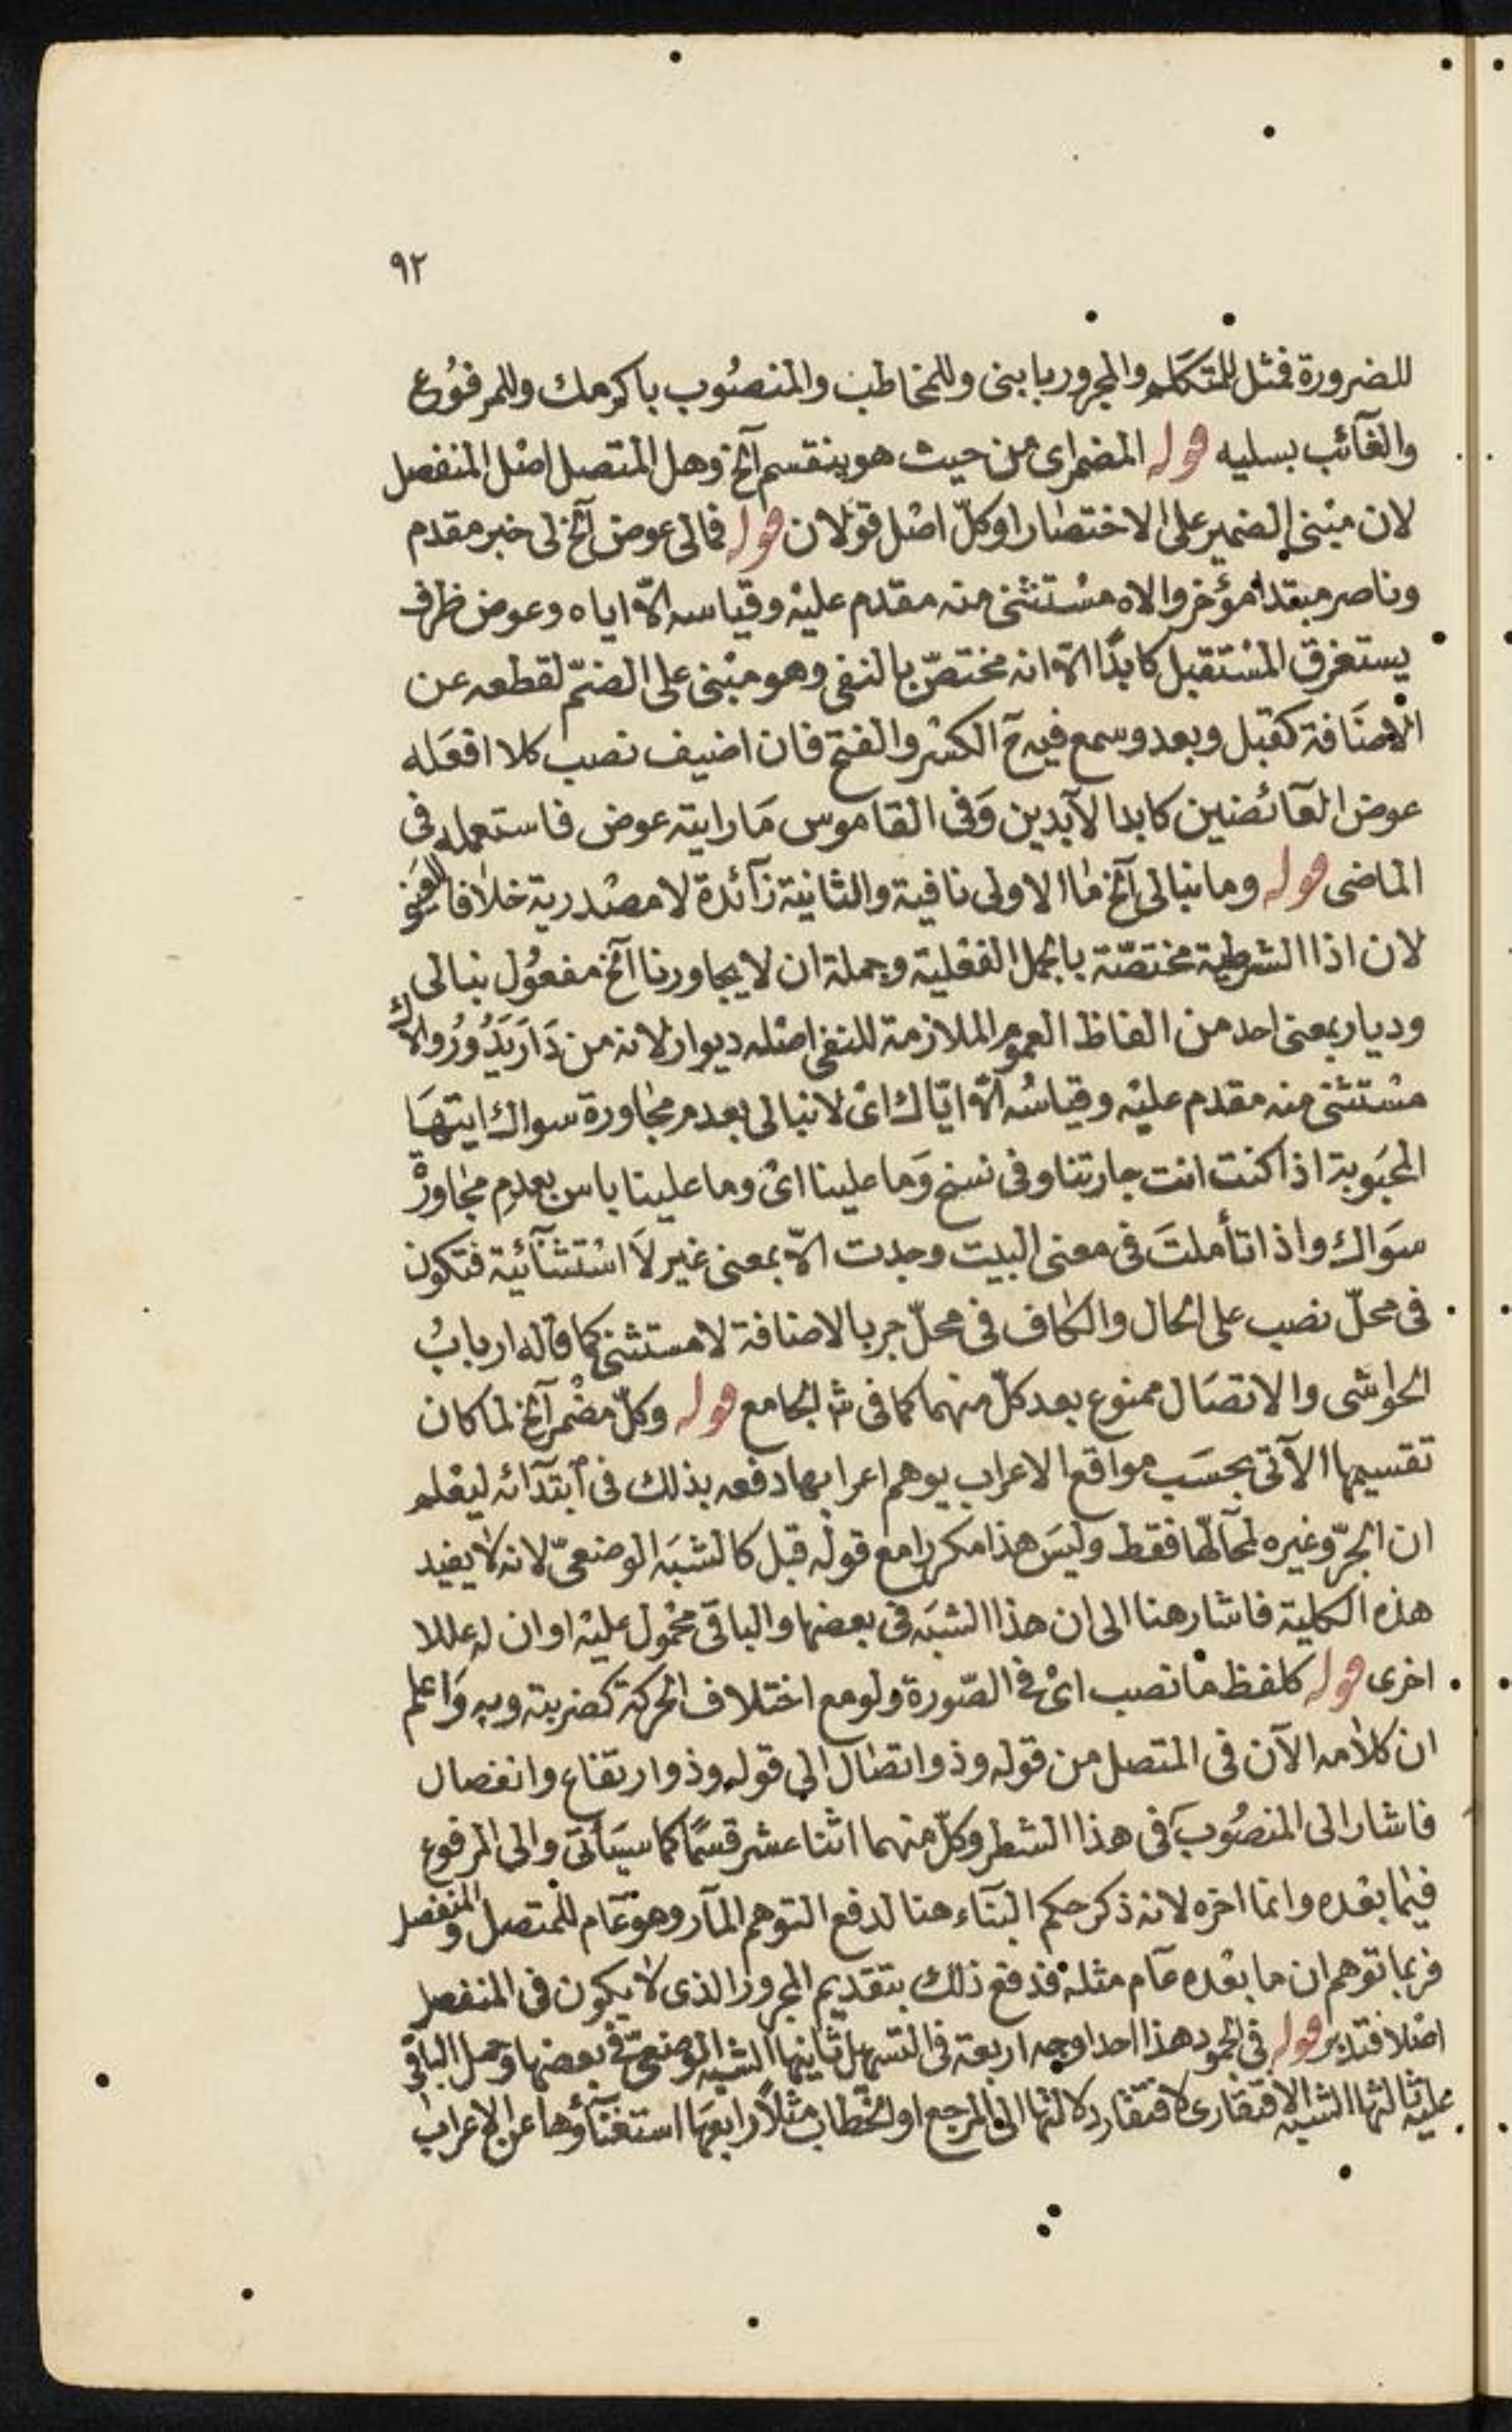 ٩٢
للضرورة فمثل للمتكلم والمجرور بابنى وللمخاطب والمنصُوب باكرمك وللمرفوُع
والغآئب بسليه قوله المضمر اى من حيث هو ينقسم آلخ وهل المتصل اصْل المنفصل
لان مبْنى الضمير على الاختصار او كلّ اصْل قولان قوله فمالى عوض آلخ لى خبر مقدم
وناصر مبتدا مؤخر والاه مسْتثنى منه مقدم عليْه وقياسه الّا اياه وعوض ظرف
يستغرق المسْتقبل كابدًا الّا انه مختصّ بالنفى وهو مبْنى على الضمّ لقطعه عن
الاضَافة كقبل وبعد وسمع فيه حَ الكسْر والفتح فان اضيف نصب كلا افعَله
عوض العآئضين كابدا لآبدين وَفى القاموس مَا رايته عوض فاستعمله فى
الماضى قوله وما نبالى آلخ ما الاولى نافية والثانية زآئدة لا مصْدرية خلافا للعَينى
لان اذا الشرطية مختصّة بالجمل الفعْلية وجملة ان لا يجاورنا آلخ مفعوُل نبالى
وديار بمعنى احد من الفاظ العموم الملازمة للنفى اصْله ديوار لانه من دَارَ يَدُورُ والاك
مسْتثنى منه مقدم عليْه وقياسُه الّا ايّاك اىْ لا نبالى بعدم مجاورة سواك ايتهَا
المحبَوبة اذا كنت انت جارتنا وفى نسخ وَما علينا اىْ وما علينا باس بعدم مجاورة
سَواك واذا تأملتَ فى معنى البيت وجدت الّا بمعنى غير لَا اسْتثنآئية فتكون
فى محلّ نصب على الحال والكاف فى محلّ جر بالاضافة لا مستثنى كما قاله اربابُ
الحواشى والاتصَال ممنوع بعد كلّ منهما كما فى شْ الجامع قوله وكلّ مضْمر آلخ لما كان
تقسيمها الآتى بحسَب مواقع الاعراب يوهم اعرابها دفعه بذلك فى ابتدآئه ليعْلم
ان الجرّ وغيره لمحآلّها فقط وليسَ هذا مكررا مع قوله قبل كالشبَه الوضعىّ لانه لا يفيد
هذه الكلية فاشار هنا الى ان هذا الشبَه فى بعضها والباقى محْمول عليْه او ان له عللا
اخرى قوله كلفظ ما نصب اىْ فى الصّورة ولو مع اختلاف الحركة كضربته وبه وَاعلم
ان كلامه الآن فى المتصل من قوله وذو اتصَال الى قوله وذو ارتفاع وانفصال
فاشار الى المنصُوب فى هذا الشطر وكلّ منهما اثنا عشر قسمًا كما سيَأتى والى المرفوع
فيما بعْده وانما اخره لانه ذكر حكم البنآء هنا لدفع التوهم المآر وهو عَام للمتصل والمنفصل
فربما توهم ان ما بعْده عَام مثله فدفع ذلك بتقديم المجرور الذى لا يكون فى المنفصل
اصْلا فتدبر قوله فى الجمود هذا احد اوجه اربعة فى التسهيل ثانيها الشبه الوضعىّ فى بعضها وحمل الباقى
عليه ثالثها الشبه الافتقارى لافتقار دلالتها الى المرجع او الخطاب مثلًا رابعهَا استغنآؤها عن الاعراب